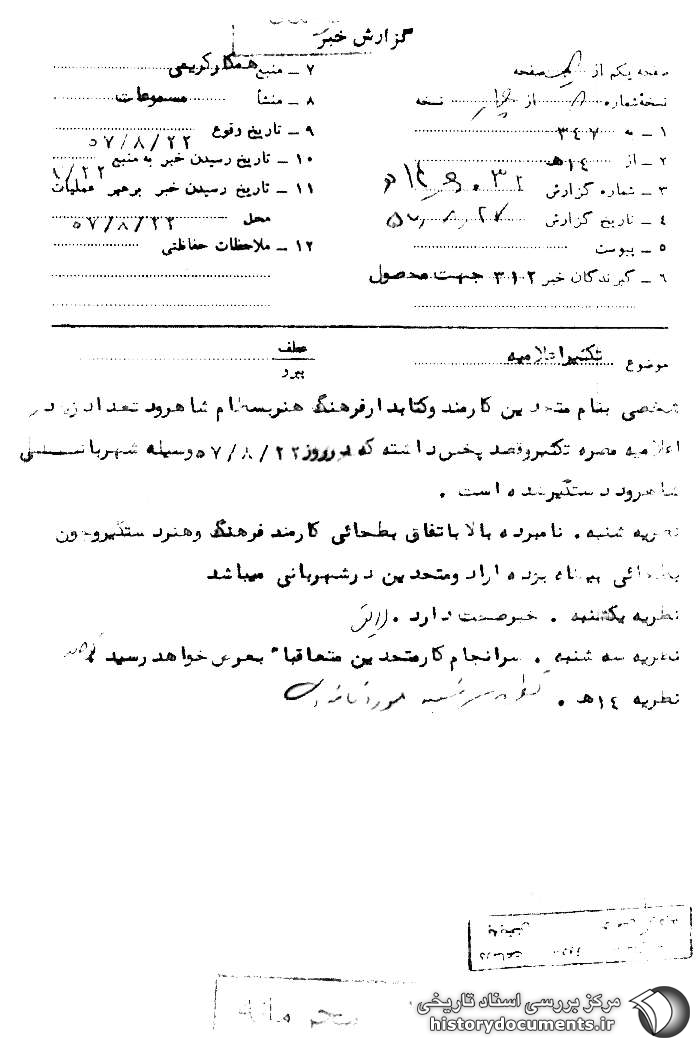 گزارش خبر
صفحه یکم از یک صفحه
نسخهٔ شماره از چهار نسخه
۱ ـ به ۳۴۷
۲ ـ از ۱۴ه‍
۳ ـ شماره گزارش
۴ ـ تاریخ گزارش
۵ ـ پیوست
۶ ـ گیرندگان خبر ۳۱۲ جهت محصول
۷ ـ منبع همکار کریمی
۸ ـ منشأ مسموعات
۹ ـ تاریخ وقوع ۵۷/۸/۲۲
۱۰ ـ تاریخ رسیدن خبر به منبع
۱۱ ـ تاریخ رسیدن خبر برهبر عملیات
محل ۵۷/۸/۲۲
۱۲ ـ ملاحظات حفاظتی
موضوع تکثیر اعلامیه
عطف
پیرو
شخصی بنام متحدین کارمند وکتابدار فرهنگ هنر بسطام شاهرود تعدادی
اعلامیه مضره تکثیر وقصد پخش داشته که در روز ۵۷/۸/۲۲ وسیله شهربانی
شاهرود دستگیر شده است .
نظریه شنبه . نامبرده بالا باتفاق بطحائی کارمند فرهنگ وهنر دستگیر وچون
بطحائی بیگناه بوده آزاد ومتحدین در شهربانی میباشد
نظریه یکشنبه . خبر صحت دارد .
نظریه سه شنبه . سرانجام کار متحدین متعاقباً بعرض خواهد رسید
نظریه ۱۴ه‍ . نظریه سه شنبه مورد تائید است
مرکز بررسی اسناد تاریخی
historydocuments.ir